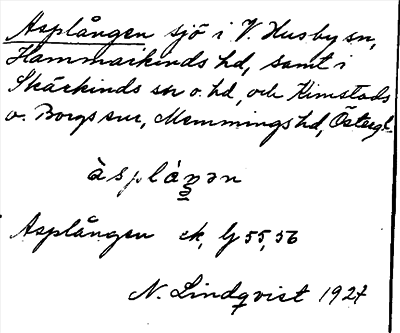 Asplången sjö i V. Husby sn,
Hammarkinds hd, samt i
Skärkinds sn o. hd, och Kimstads
o. Borgs snr, Memmings hd, Östergl.
àspláŋən
Asplången ek, bl 55, 56
N. Lindqvist 1927